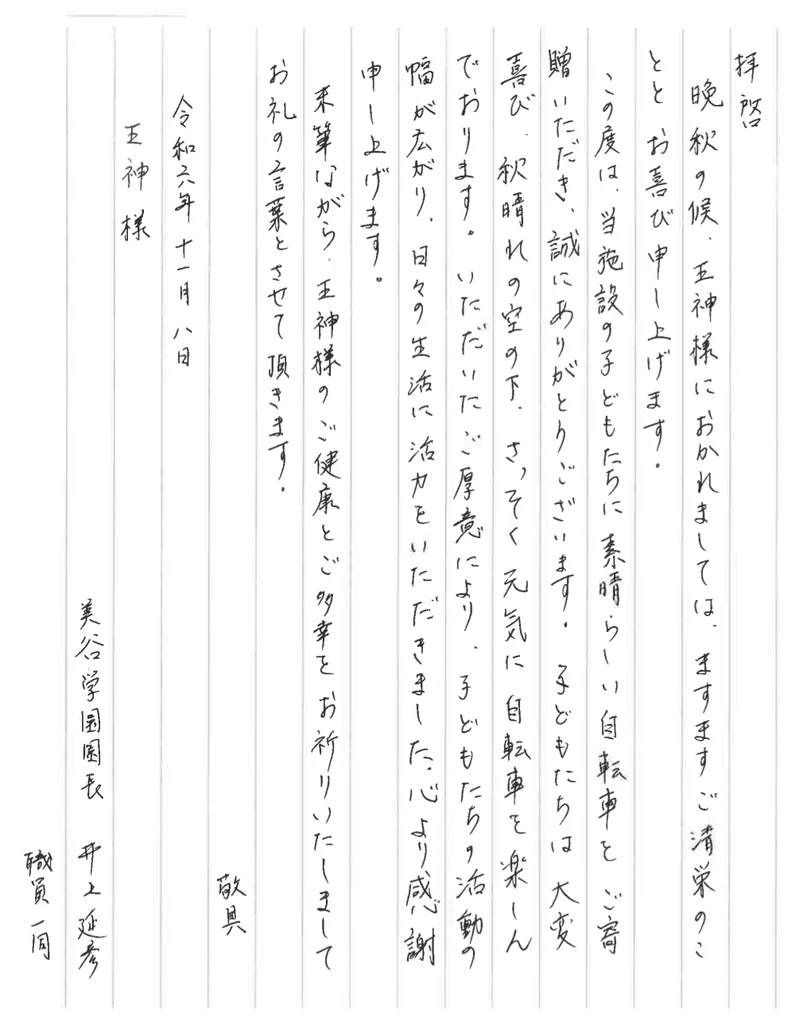 拝啓
晩秋の候、王神様におかれましては、ますますご清栄のこ
ととお喜び申し上げます。
この度は、当施設の子どもたちに素晴らしい自転車をご寄
贈いただき、誠にありがとうございます。子どもたちは大変
喜び、秋晴れの空の下、さっそく元気に自転車を楽しん
でおります。いただいたご厚意により、子どもたちの活動の
幅が広がり、日々の生活に活力をいただきました。心より感謝
申し上げます。
末筆ながら、王神様のご健康とご多幸をお祈りいたしまして
お礼の言葉とさせて頂きます。
敬具
令和六年十一月八日
王神様
美谷学園園長 井上延彦
職員一同